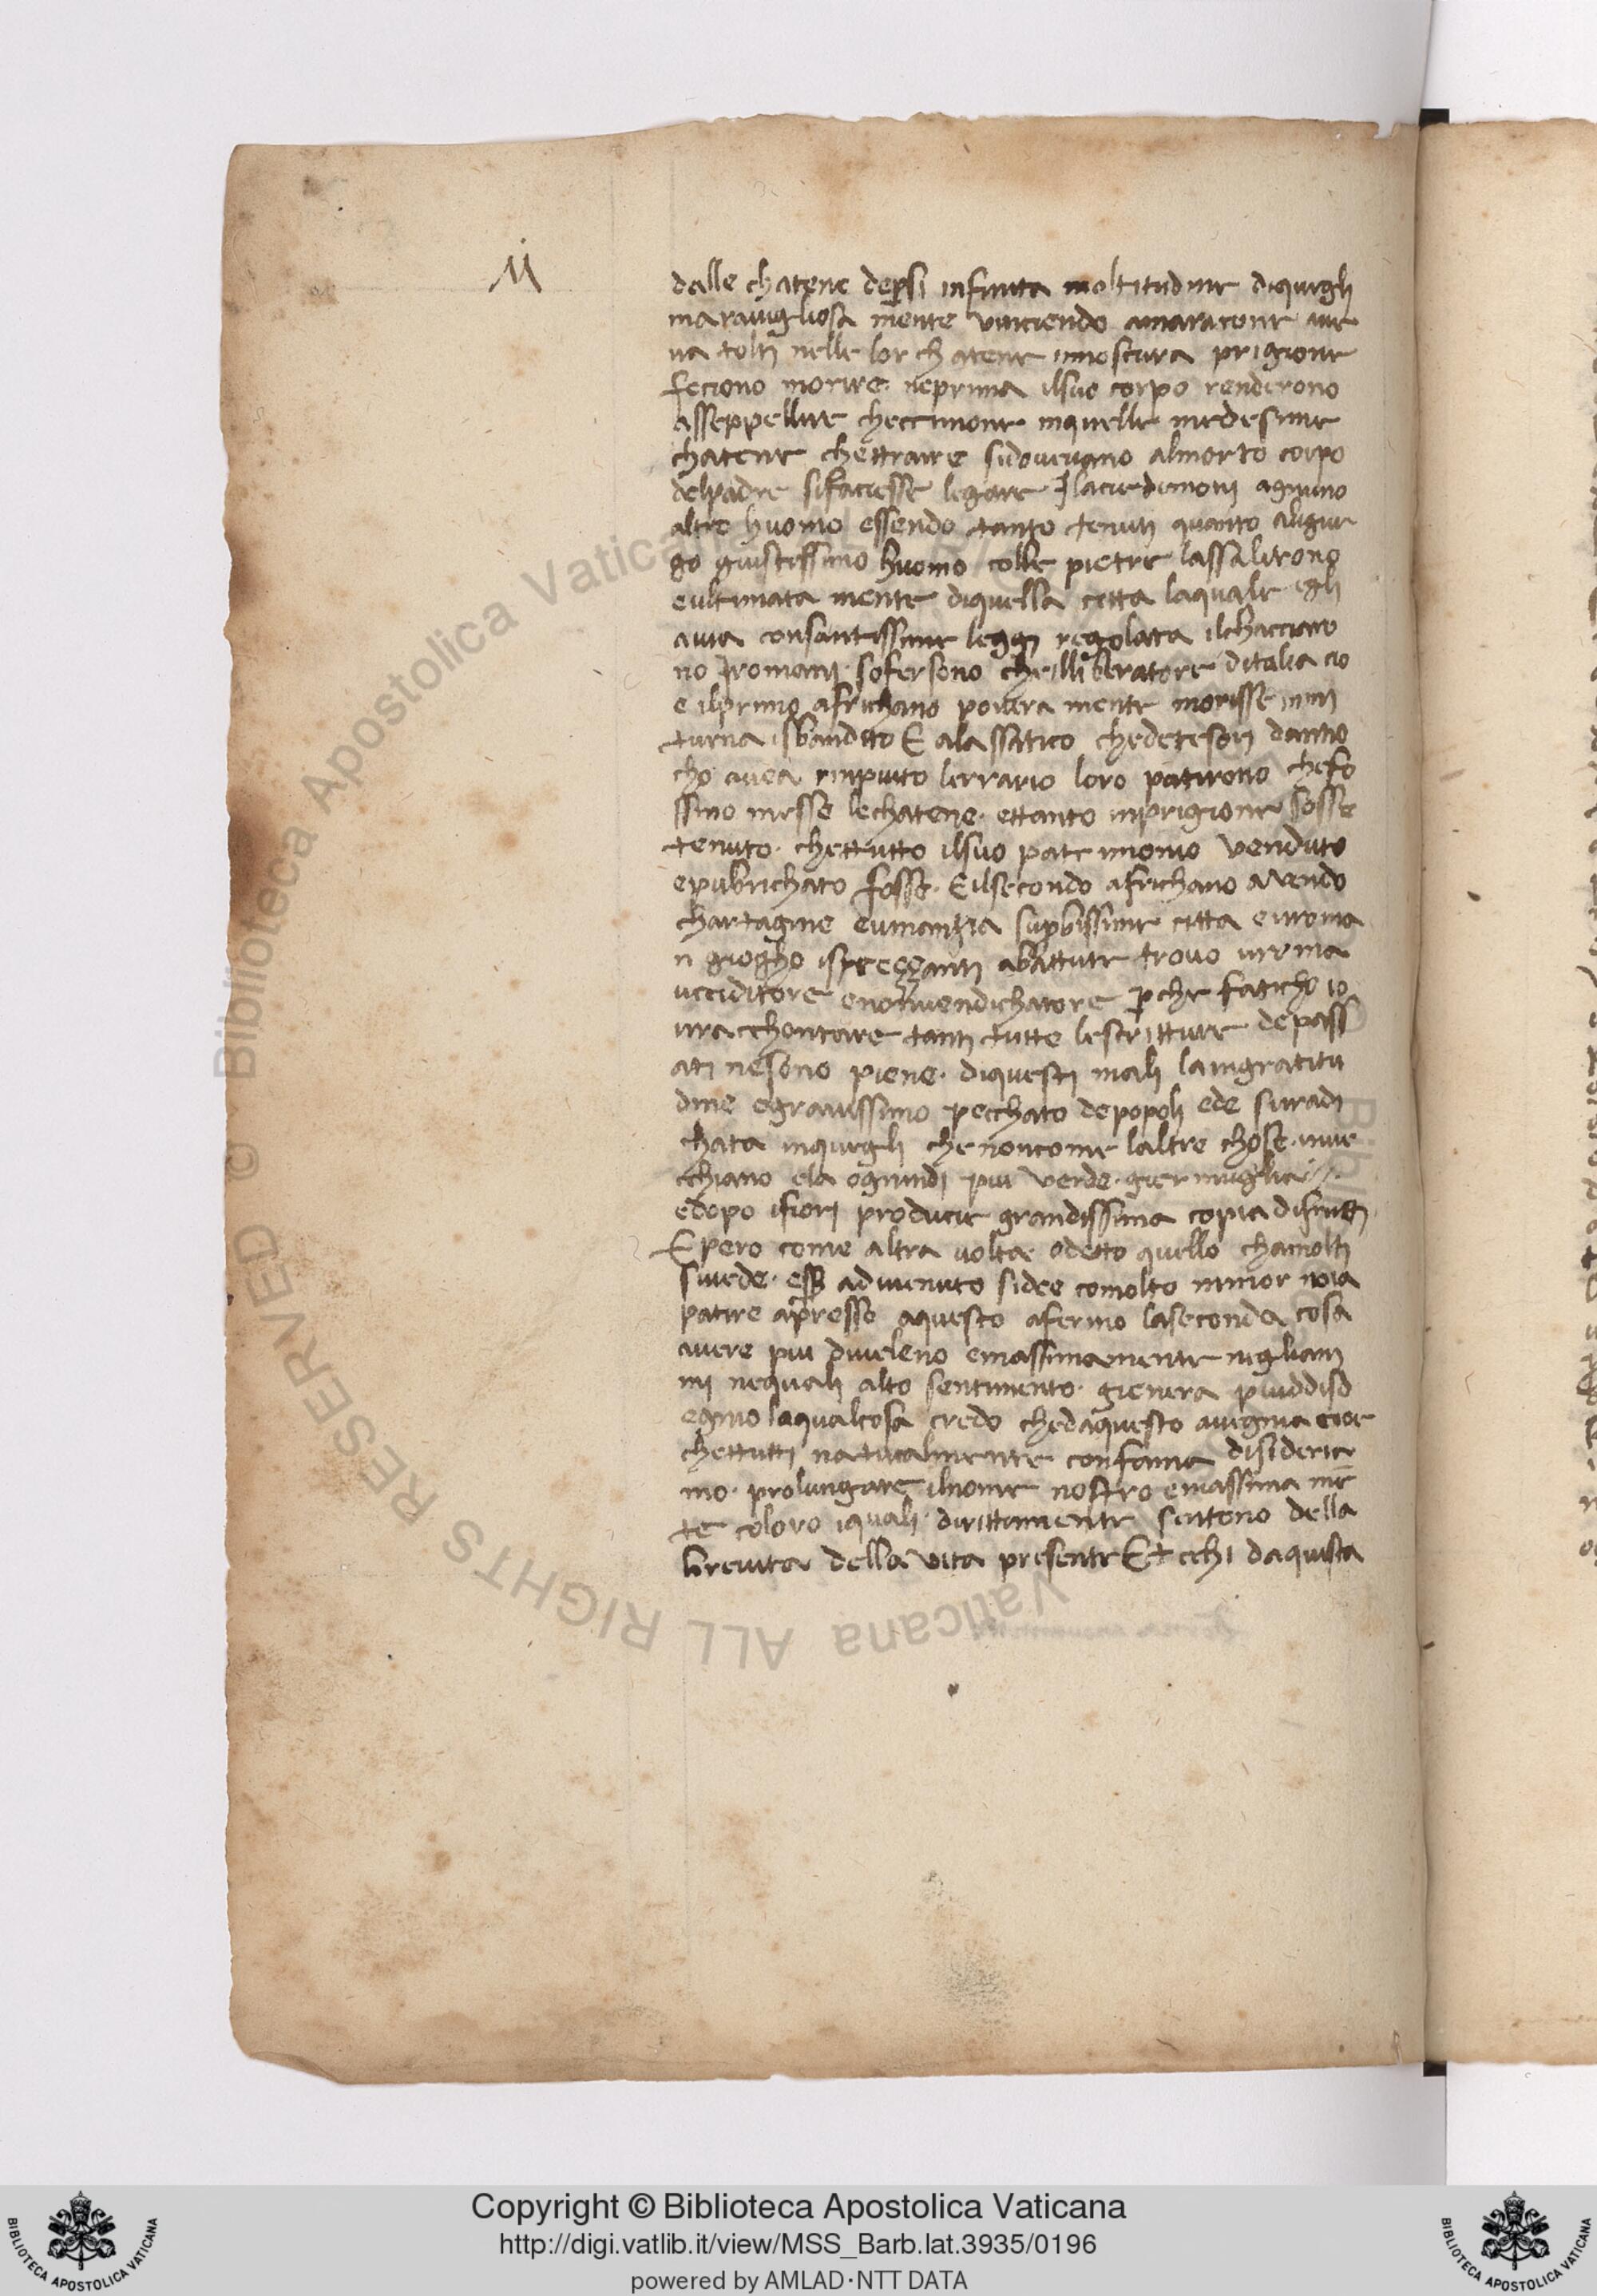 dalle chatene depersi infinita moltitudine diquegli
maravigliosa mente vinciendo amaracone ave
va tolti nelle lor chatene innoscura prigione
feciono morire neprima ilsuo corpo renderono
asseppellire checcimone inquelle medesime
chatene chettraire sidoveuano almorto corpo
delpadre sifaciesse legare Ilaciedemoni agniuno
altro huomo essendo tanto tenuti quanto aligur
go giustissimo huomo colle pietre lassalirono
eultimata mente diquella citta laquale egli
auia consantissime leggi regolata ilchacciaro
no Iromani sofersono chelliberatore ditalia cio
e ilprimo africhano povera mente morisse inlin
turna isbandito E alassiatico chedetesori dantio
cho avea empiuto lerrario loro patirono chefo
ssino messe lechatene ettanto inprigione fosse
tenuto chettutto ilsuo patrimonio venduto
epubrichato fosse Eilsecondo africhano avendo
chartagine enumanzia superbissime citta eiroma
n giogho isprezzanti abattute trovo inroma
ucciditore enonvendichatore perche faticho io
inracchontare tanti tutte lescritture depass
ati nesono piene diquesti mali laingratitu
dine egravissimo pecchato depopoli ede siradi
chata inquegli chenoncome laltre chose inve
chiano ela ogniundi piu verde giermuglia
edopo ifiori producie grandissima copia difrutti
Epero come altra volta odetto quello chamolti
sivede essere advenuto sidee comolto minor noia
patire apresso aquesto afermo laseconda cosa
avere piu diveleno emassimamente negliani
mi nequali alto sentimento gienera piuddisd
egnio laqualcosa credo chedaquesto avegnia cioe
chettutti naturalmente confama disideria
mo prolungare ilnome nostro emassima men
te coloro iquali dirittamente sentono della
brevita della vita presente Et cchi daquista
Copyright © Biblioteca Apostolica Vaticana
http://digi.vatlib.it/view/MSS_Barb.lat.3935/0196
powered by AMLAD·NTT DATA
BIBLIOTECA APOSTOLICA VATICANA
BIBLIOTECA APOSTOLICA VATICANA
© Biblioteca Apostolica Vaticana
Vaticana ALL RIGHTS RESERVED